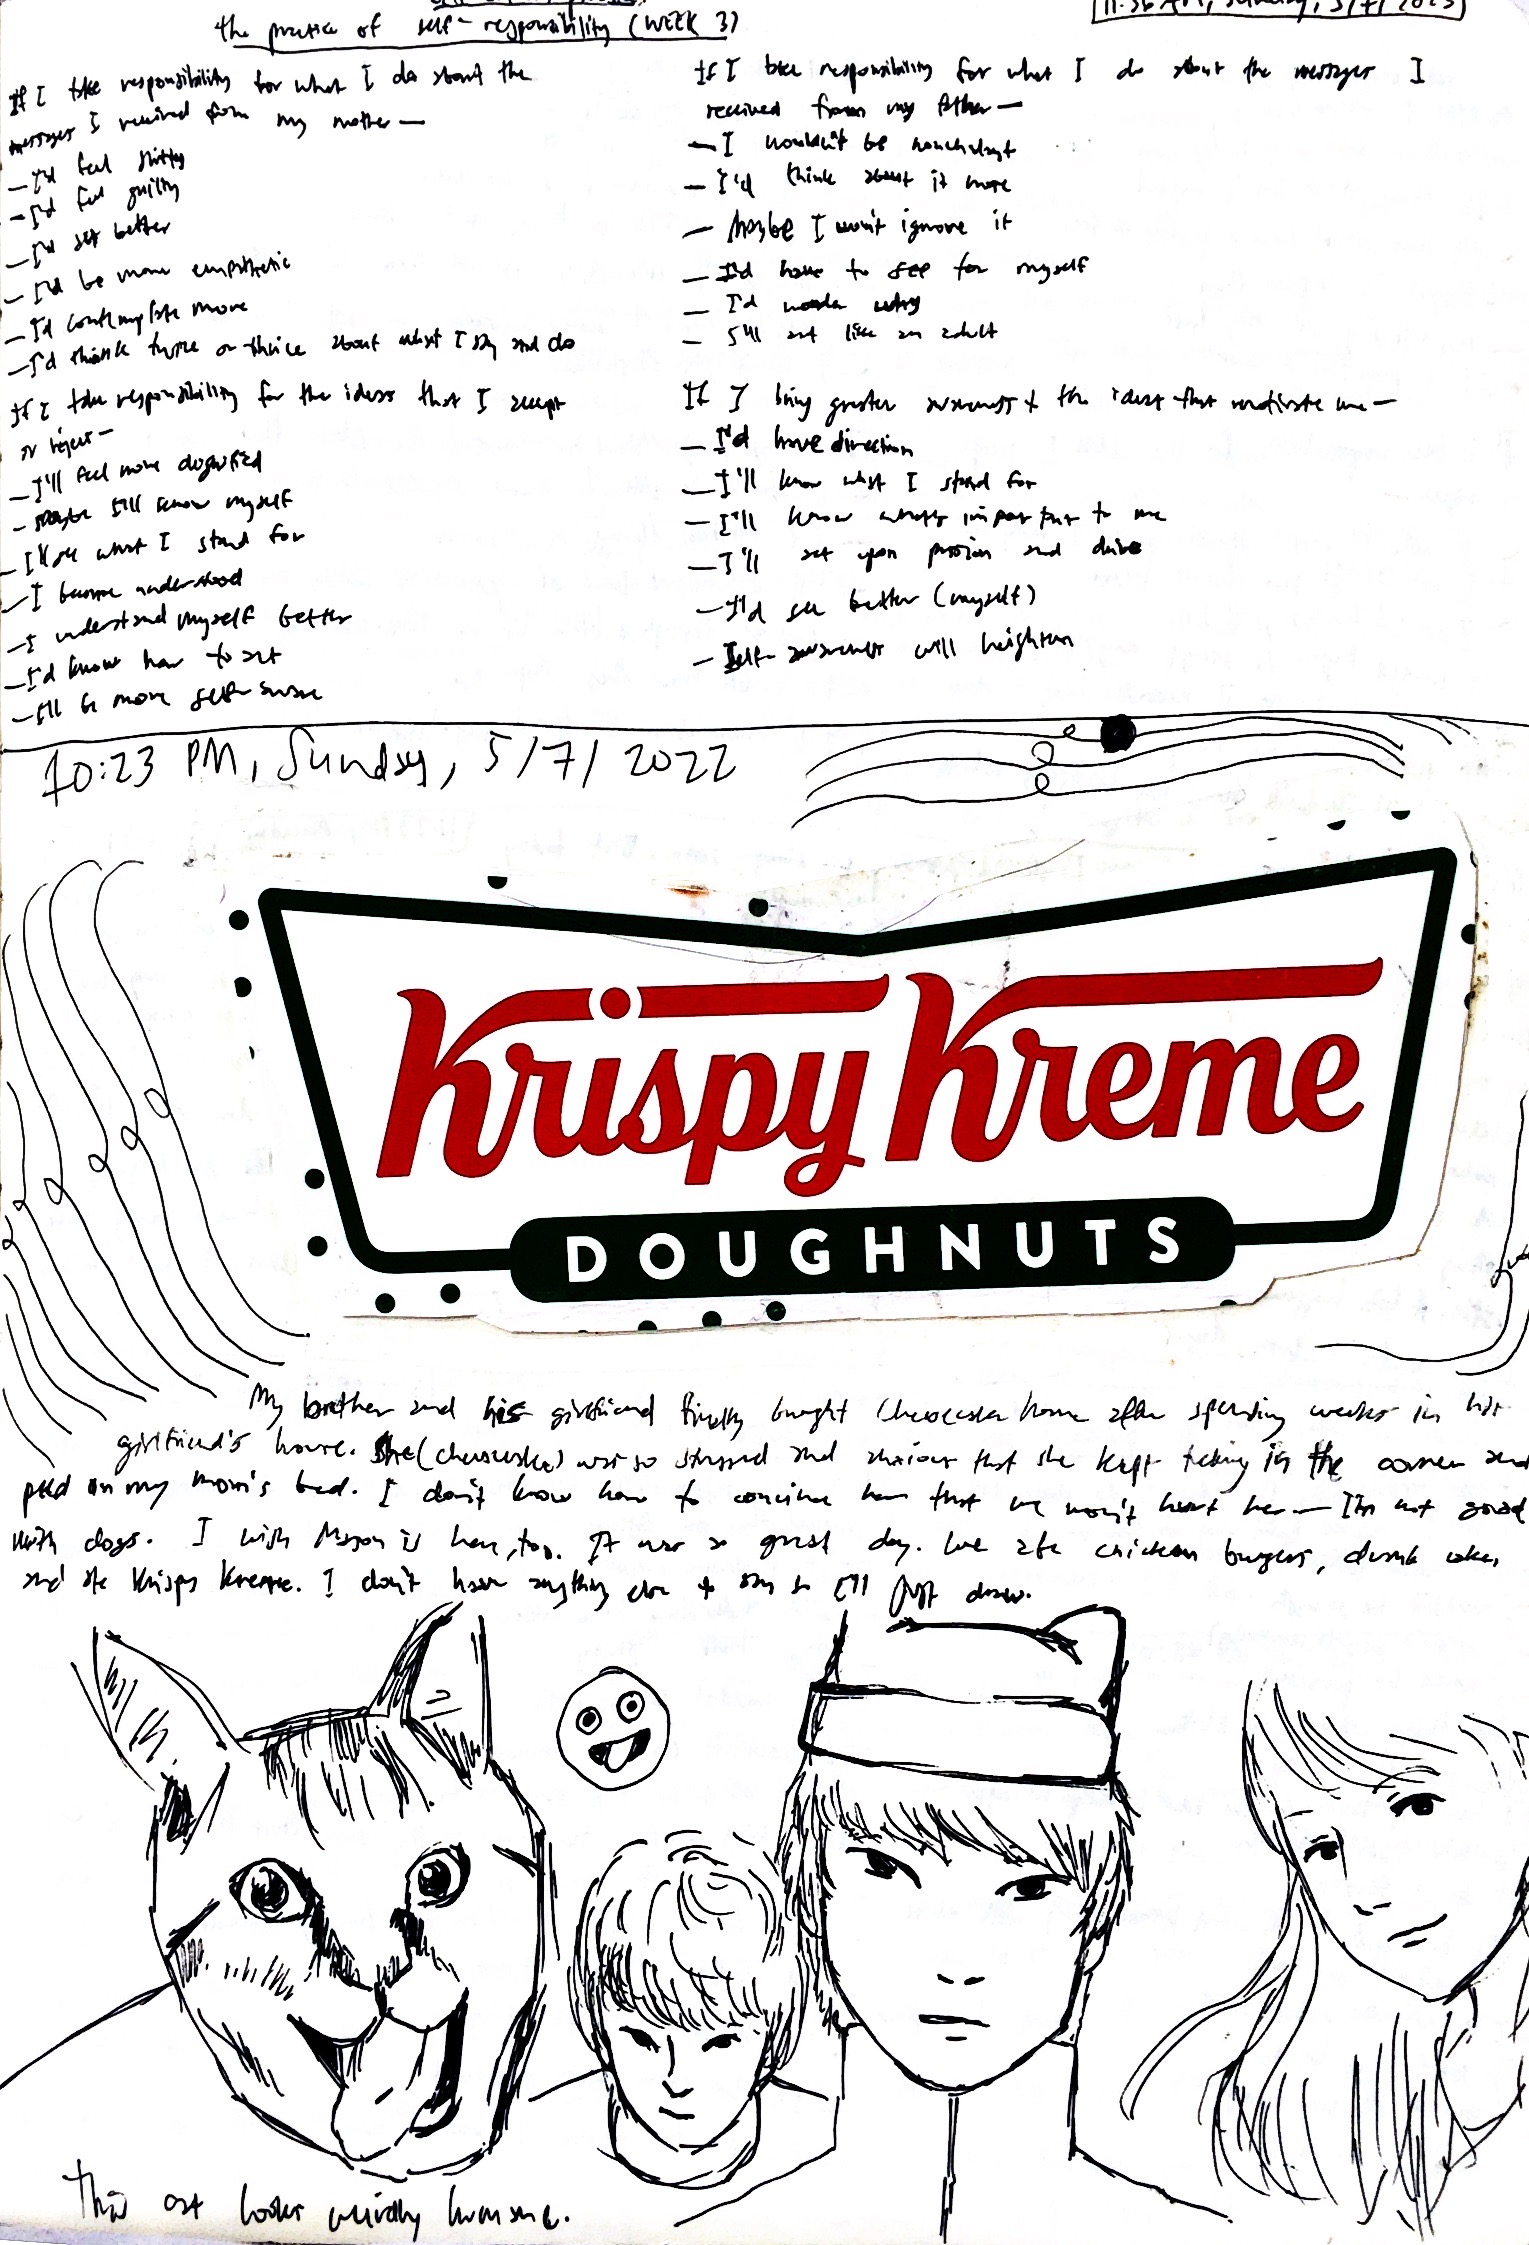 the practice of self-responsibility (WEEK 3)
11:56 AM, Sunday, 5/7/2023
If I take responsibility for what I do about the
messages I received from my mother—
—I'd feel shitty
—I'd feel guilty
—I'd act better
—I'd be more empathetic
—I'd contemplate more
—I'd think twice or thrice about what I say and do
If I take responsibility for the ideas that I accept
or reject—
—I'll feel more dignified
—Maybe I'll know myself
—I'll see what I stand for
—I become understood
—I understand myself better
—I'd know how to act
—I'll be more self-aware
If I take responsibility for what I do about the messages I
received from my father—
—I wouldn't be nonchalant
—I'd think about it more
—Maybe I won't ignore it
—I'd have to see for myself
—I'd wonder why
—I'll act like an adult
If I bring greater awareness to the ideas that motivate me—
—I'd have direction
—I'll know what I stand for
—I'll know what's important to me
—I'll act upon passion and drive
—I'd see better (myself)
—Self-awareness will heighten
10:23 PM, Sunday, 5/7/2022
Krispy Kreme
DOUGHNUTS
My brother and his girlfriend finally bought home after spending weeks in his
girlfriend's house. She was so stressed and anxious that she kept in the corner and
peed on my mom's bed. I don't know how to convince her that we won't hurt her—I'm not good
with dogs. I wish is here, too. It was a great day. We ate chicken burgers, drank coke,
and ate Krispy Kreme. I don't have anything else to say so I'll just draw.
This cat looks weirdly humane.